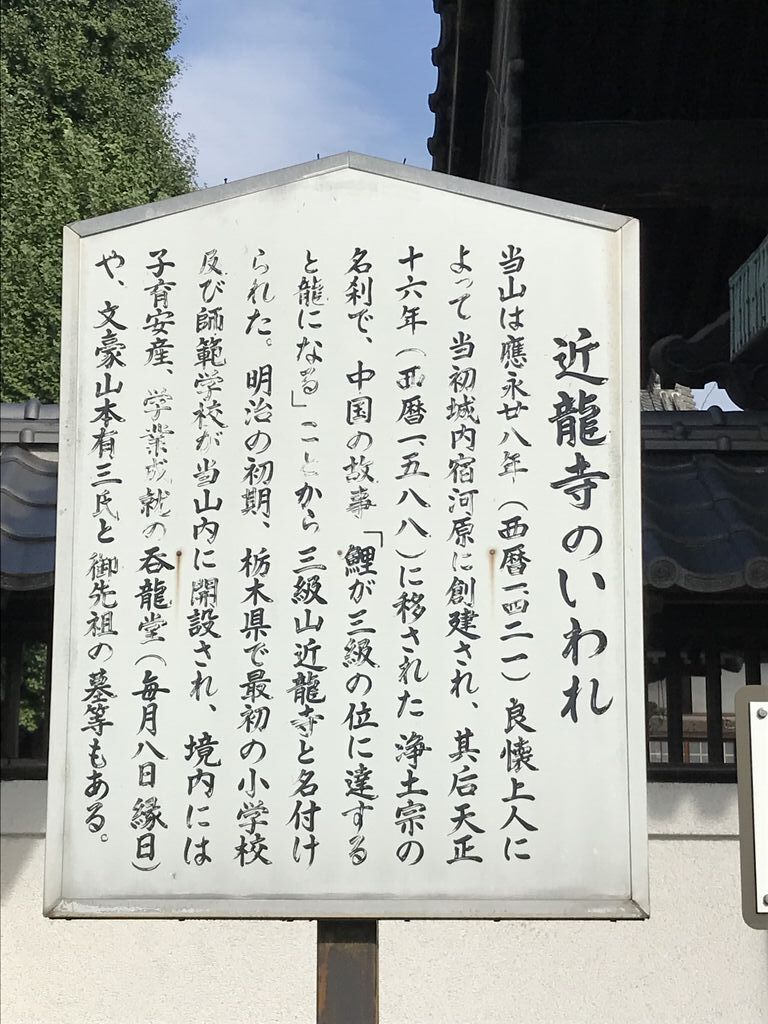 近龍寺のいわれ
当山は應永廿八年（西暦一、四二一）良懐上人に
よって当初城内宿河原に創建され、其后天正
十六年（西暦一、五八八）に移された浄土宗の
名刹で、中国の故事「鯉が三級の位に達する
と龍になる」ことから三級山近龍寺と名付け
られた。明治の初期、栃木県で最初の小学校
及び師範学校が当山内に開設され、境内には
子育安産、学業成就の呑龍堂（毎月八日縁日）
や、文豪山本有三氏と御先祖の墓等もある。